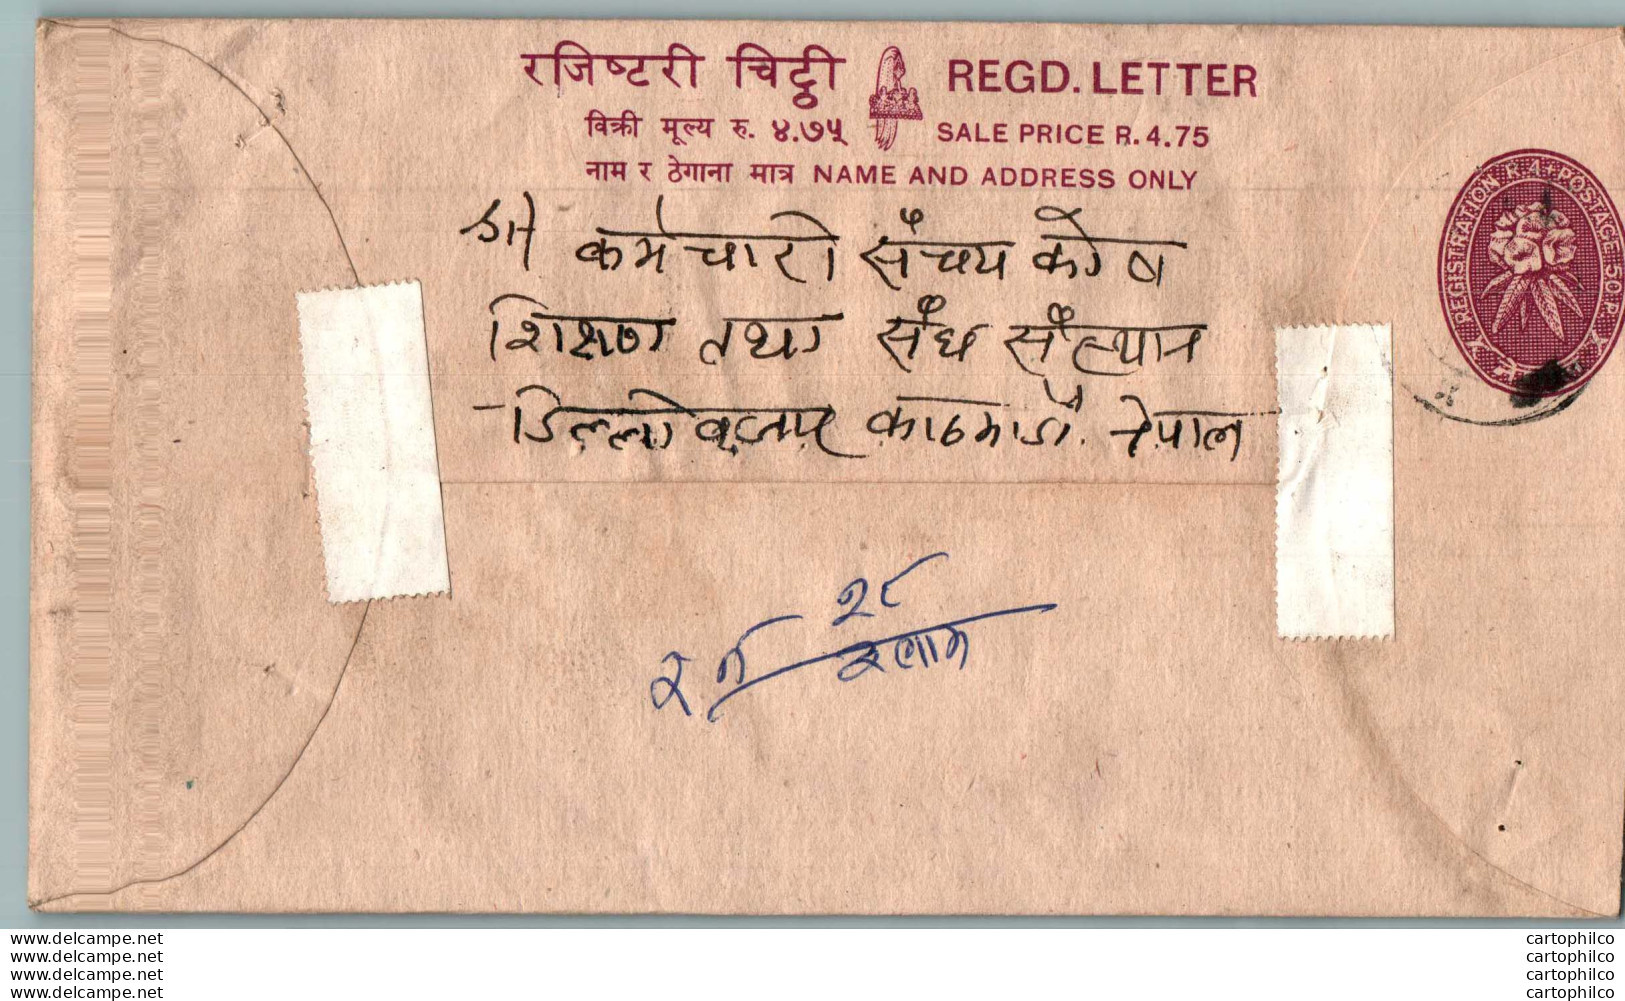 रजिष्टरी चिट्ठी REGD. LETTER
विक्री मूल्य रु. ४.७५ SALE PRICE R. 4.75
नाम र ठेगाना मात्र NAME AND ADDRESS ONLY
REGISTRATION R.4 POSTAGE 50 P.
श्री कर्मचारी संचय कोष
शिक्षण तथा संघ संस्थान
डिल्लीबजार काठमाडौं. नेपाल
र नं २८
इलाम
www.delcampe.net cartophilco
www.delcampe.net cartophilco
www.delcampe.net cartophilco
www.delcampe.net cartophilco